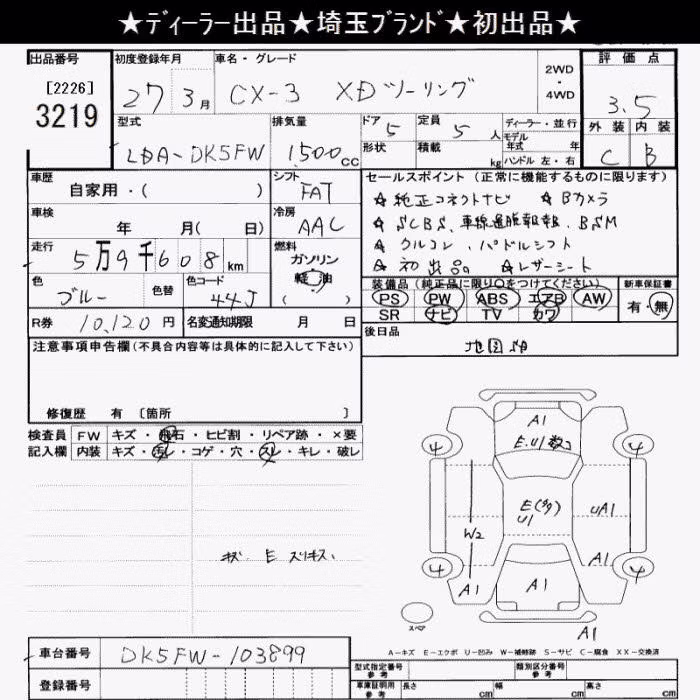 ★ディーラー出品★埼玉ブランド★初出品★
出品番号 初度登録年月 車名・グレード 2WD・4WD 評価点
[2226]
3219
27 3月 CX-3 XDツーリング 3.5
型式 排気量 ドア 5 定員 5人 ディーラー・並行 外装 内装
モデル年式 年
LDA-DK5FW 1500cc 形状 積載 kg ハンドル 左・右 C B
車歴 シフト セールスポイント(正常に機能するものに限ります)
自家用・( ) FAT ☆純正コネクトナビ ☆Bカメラ
車検 冷房 ☆SCBS、車線逸脱警報、BSM
年 月( 日) AAC ☆クルコン、パドルシフト
走行 燃料 ☆初出品 ☆レザーシート
5万9千608km ガソリン
軽油
( )
装備品(純正品に限り○をつけてください) 新車保証書
色 色替 色コード PS PW ABS エアB AW 有・無
ブルー 44J SR ナビ TV カワ
R券 10,120円 名変通知期限 月 日 後日品
地図SD
注意事項申告欄(不具合内容等は具体的に記入して下さい)
修復歴 有 [箇所 ]
検査員 FW キズ・飛石・ヒビ割・リペア跡・×要
記入欄 内装 キズ・汚レ・コゲ・穴・スレ・キレ・破レ
キズ、E スリキズ、
A1
E.U1数コ
4 4
E(多)
U1
UA1
W2
A1
4 4
A1 A1
スペア
A1
A-キズ E-エクボ U-凹み W-補修跡 S-サビ C-腐食 XX-交換済
車台番号 DK5FW-103899
型式指定番号 参考 類別区分番号 参考
登録番号
車庫証明用 参考 長さ cm 幅 cm 高さ cm